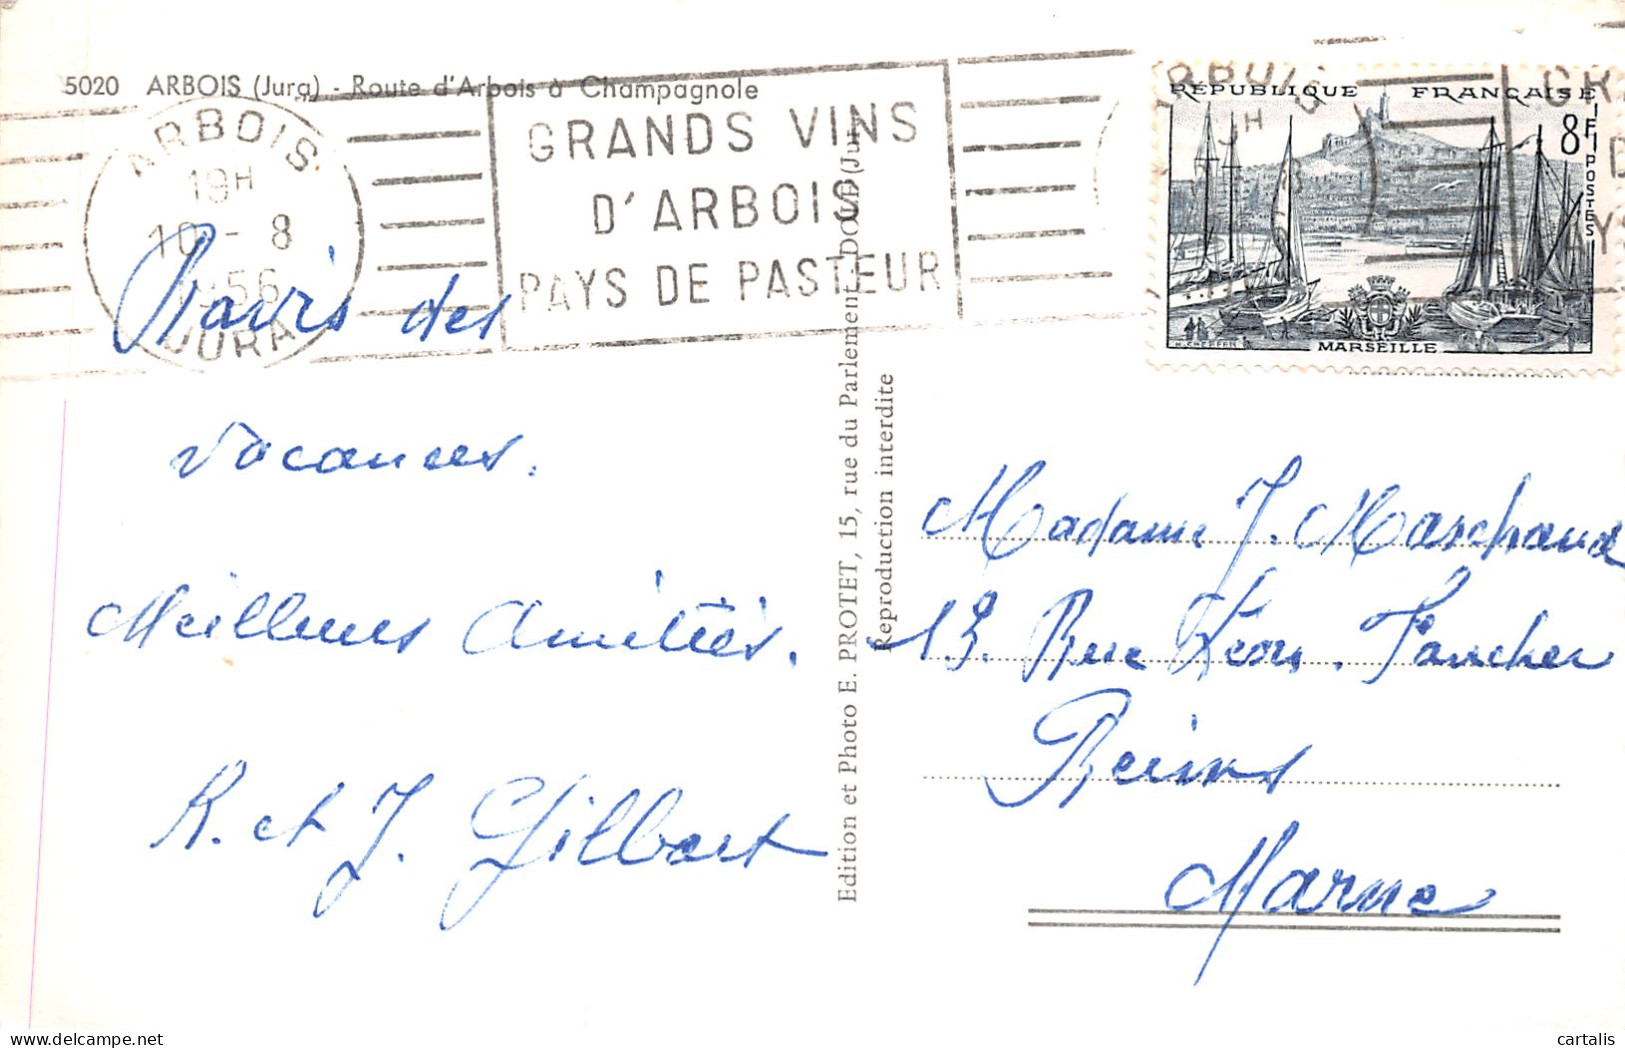 5020 ARBOIS (Jura) - Route d'Arbois à Champagnole
ARBOIS
19H
10 - 8
1956
JURA
GRANDS VINS
D'ARBOIS
PAYS DE PASTEUR
RÉPUBLIQUE FRANÇAISE
8F
POSTES
MARSEILLE
Ravis des
vacances.
Meilleures Amitiés.
R. et J. Gilbert
Edition et Photo E. PROTET, 15, rue du Parlement, DOLE (Jura)
Reproduction interdite
Madame J. Marchand
13. Rue Léon. Faucher
Reims
Marne
cartalis